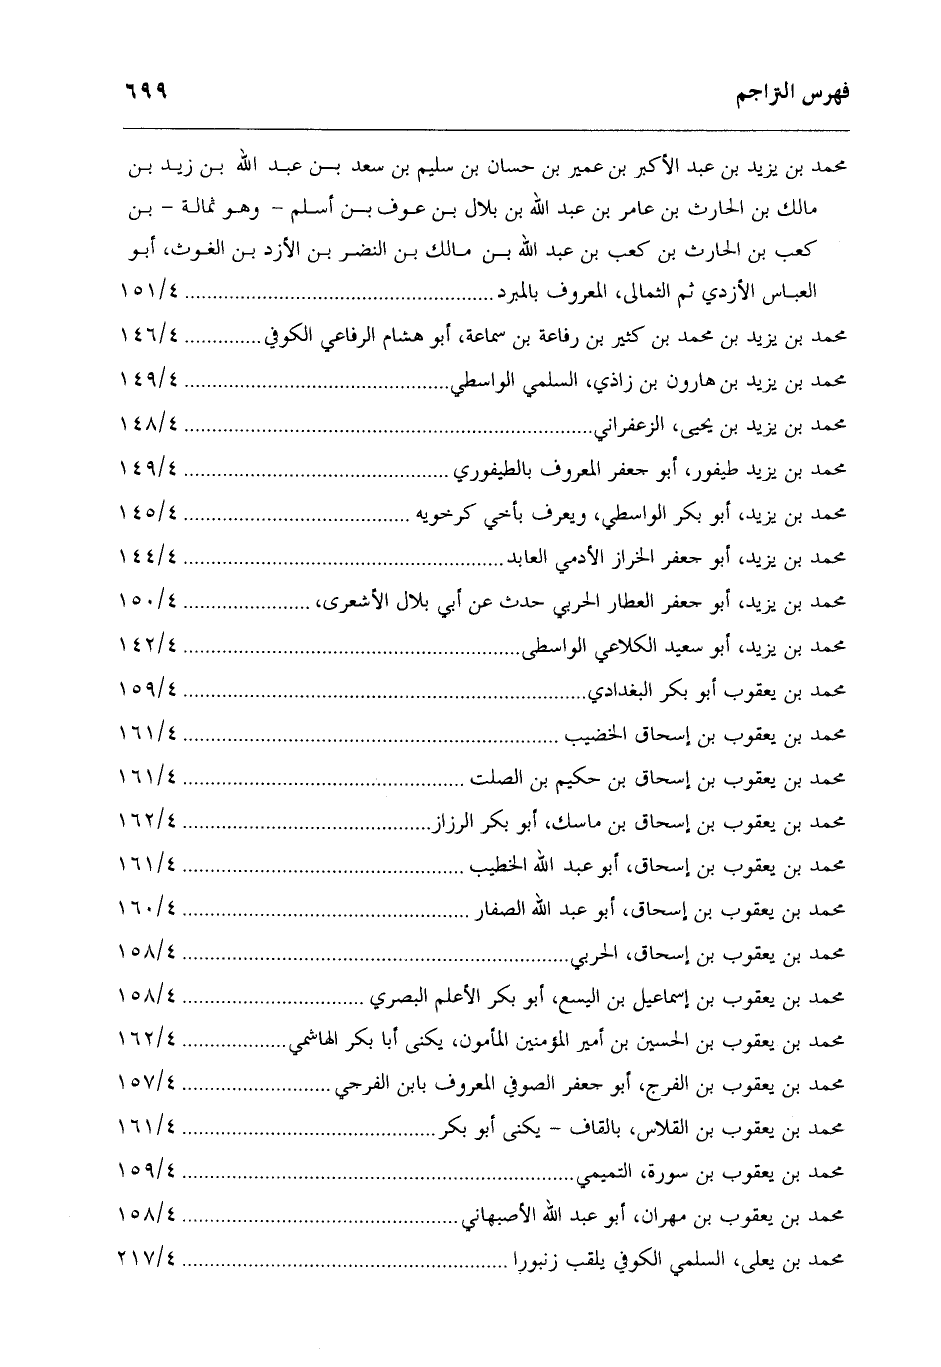 فهرس التراجم ٦٩٩
محمد بن يزيد بن عبد الأكبر بن عمير بن حسان بن سليم بن سعد بن عبد الله بن زيد بن
مالك بن الحارث بن عامر بن عبد الله بن بلال بن عوف بن أسلم – وهو ثمالة – بن
كعب بن الحارث بن كعب بن عبد الله بن مالك بن النضر بن الأزد بن الغوث، أبو
العباس الأزدي ثم الثمالى، المعروف بالمبرد ........ ١٥١/٤
محمد بن يزيد بن محمد بن كثير بن رفاعة بن سماعة، أبو هشام الرفاعي الكوفي ........ ١٤٦/٤
محمد بن يزيد بن هارون بن زاذي، السلمي الواسطي ........ ١٤٩/٤
محمد بن يزيد بن يحيى، الزعفراني ........ ١٤٨/٤
محمد بن يزيد طيفور، أبو جعفر المعروف بالطيفوري ........ ١٤٩/٤
محمد بن يزيد، أبو بكر الواسطي، ويعرف بأخي كرخويه ........ ١٤٥/٤
محمد بن يزيد، أبو جعفر الخراز الأدمي العابد ........ ١٤٤/٤
محمد بن يزيد، أبو جعفر العطار الحربي حدث عن أبي بلال الأشعرى، ........ ١٥٠/٤
محمد بن يزيد، أبو سعيد الكلاعي الواسطى ........ ١٤٢/٤
محمد بن يعقوب أبو بكر البغدادي ........ ١٥٩/٤
محمد بن يعقوب بن إسحاق الخضيب ........ ١٦١/٤
محمد بن يعقوب بن إسحاق بن حكيم بن الصلت ........ ١٦١/٤
محمد بن يعقوب بن إسحاق بن ماسك، أبو بكر الرزاز ........ ١٦٢/٤
محمد بن يعقوب بن إسحاق، أبو عبد الله الخطيب ........ ١٦١/٤
محمد بن يعقوب بن إسحاق، أبو عبد الله الصفار ........ ١٦٠/٤
محمد بن يعقوب بن إسحاق، الحربي ........ ١٥٨/٤
محمد بن يعقوب بن إسماعيل بن اليسع، أبو بكر الأعلم البصري ........ ١٥٨/٤
محمد بن يعقوب بن الحسين بن أمير المؤمنين المأمون، يكنى أبا بكر الهاشمي ........ ١٦٢/٤
محمد بن يعقوب بن الفرج، أبو جعفر الصوفي المعروف بابن الفرجي ........ ١٥٧/٤
محمد بن يعقوب بن القلاس، بالقاف – يكنى أبو بكر ........ ١٦١/٤
محمد بن يعقوب بن سورة، التميمي ........ ١٥٩/٤
محمد بن يعقوب بن مهران، أبو عبد الله الأصبهاني ........ ١٥٨/٤
محمد بن يعلى، السلمي الكوفي يلقب زنبورا ........ ٢١٧/٤